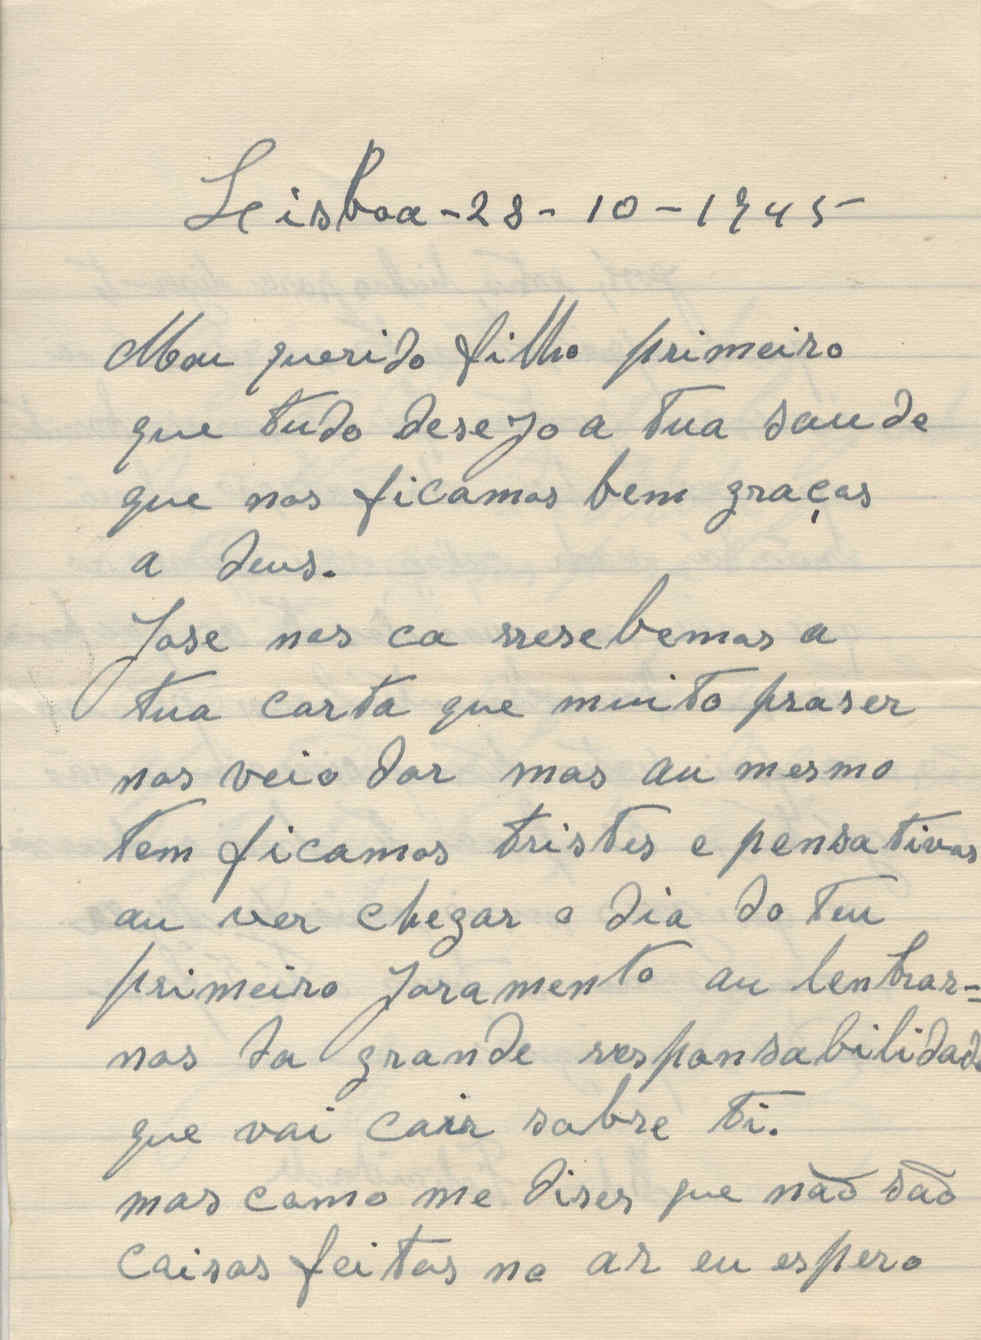 Lisboa-28-10-1945
Meu querido filho primeiro
que tudo desejo a tua saude
que nos ficamos bem graças
a Deus.
Jose nos ca rresebemos a
tua carta que muito praser
nos veio dar mas au mesmo
tem ficamos tristes e pensativos
au ver chegar o dia do teu
primeiro Joramento au lenbrar-
nos da grande responsabilidade
que vai cair sobre ti.
mas como me dises que não são
coisas feitas no ar eu espero